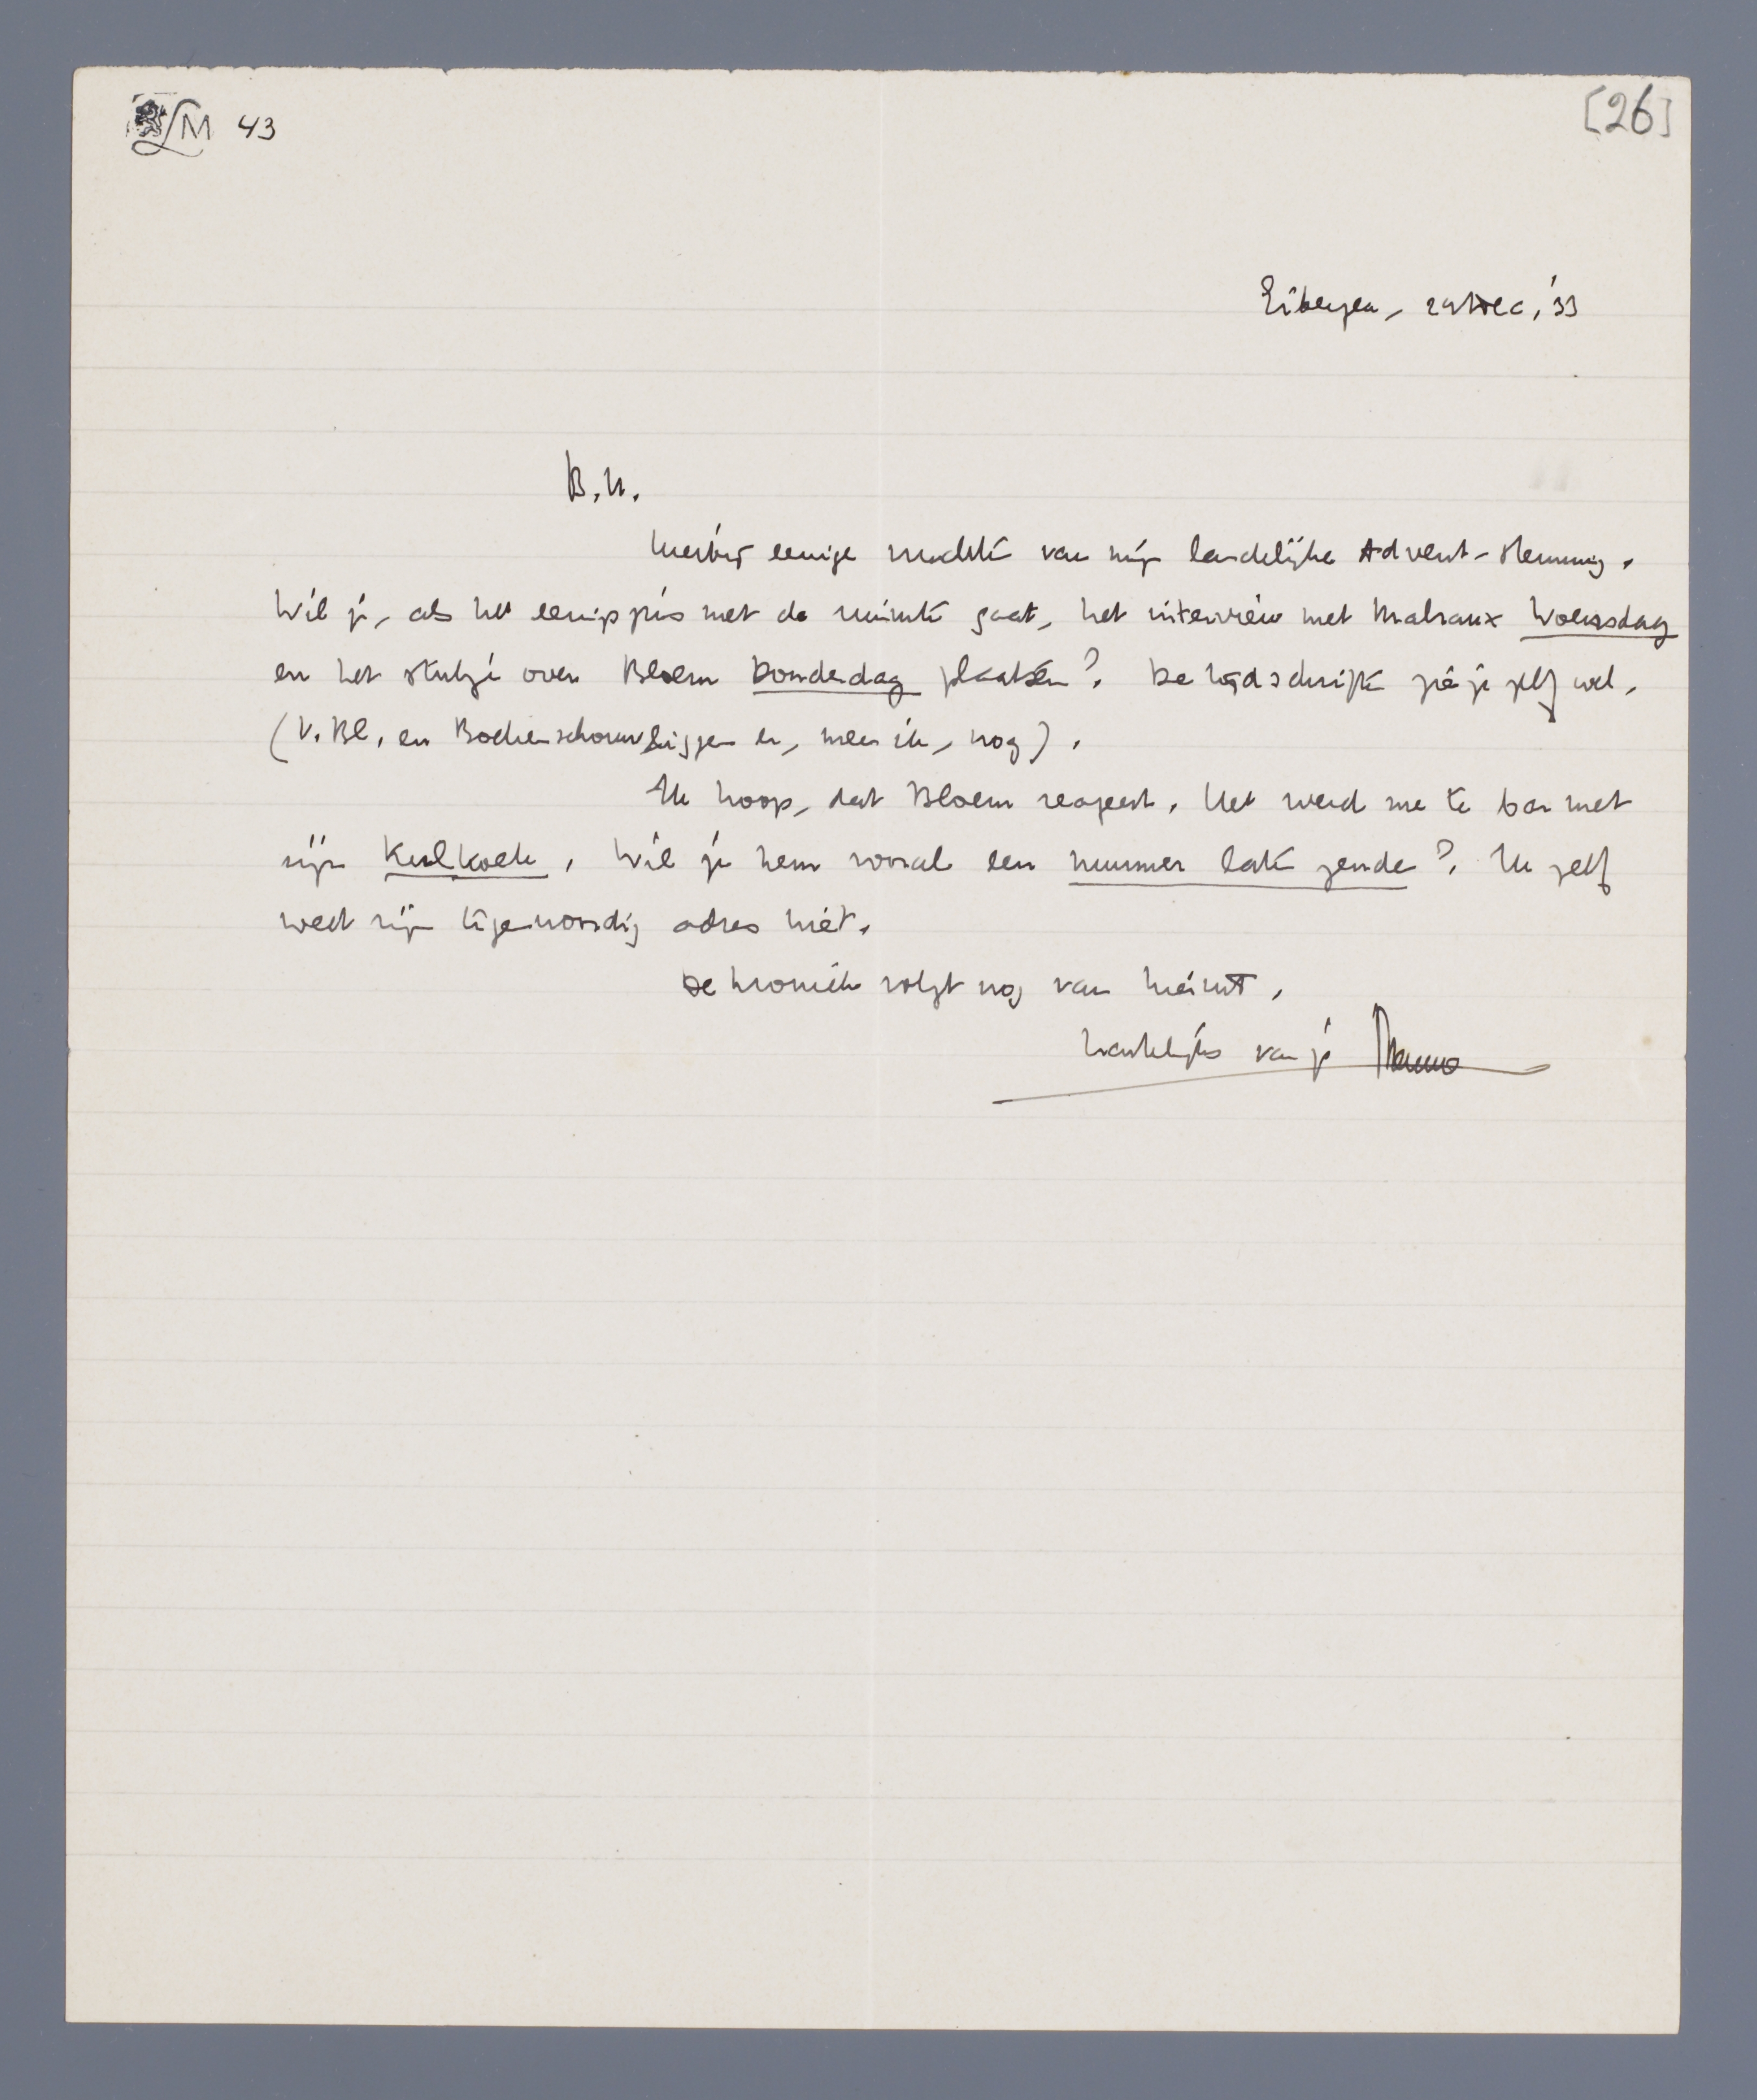 LM 43
[26]
Eibergen, 24 Dec, '33
B.H.
Hierbij eenige vruchten van mijn landelijke Advent-stemming.
Wil je, als het eenigszins met de ruimte gaat, het interview met Malraux Woensdag
en het stukje over Bloem Donderdag plaatsen? De tijdschriften zie je zelf wel.
(V. Bl. en Boekenschouw liggen er, meen ik, nog).
Ik hoop, dat Bloem reageert. Het werd me te bar met
zijn kulkoek. Wil je hem vooral een nummer laten zenden? Ik zelf
weet zijn tegenwoordig adres niet.
De kroniek volgt nog van hieruit.
Hartelijks van je Menno